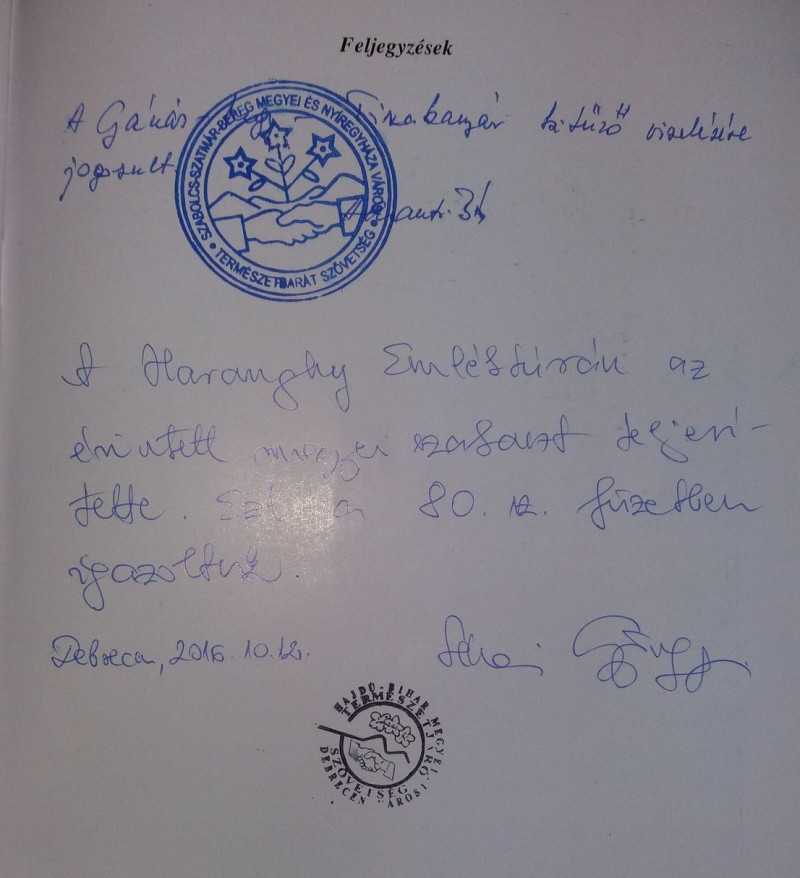 Feljegyzések
A Gánás- Tiszakanyár kitűző viselésére
jogosult.
SZABOLCS-SZATMÁR-BEREG MEGYEI ÉS NYÍREGYHÁZA VÁROSI
TERMÉSZETBARÁT SZÖVETSÉG
A Haranghy Emléktúrán az
érintett megyei szakaszt teljesí-
tette. Ezt a 80. sz. füzetben
igazoltuk.
Debrecen, 2016.10.12.
HAJDÚ-BIHAR MEGYEI
TERMÉSZETJÁRÓ
SZÖVETSÉG
DEBRECEN VÁROSI